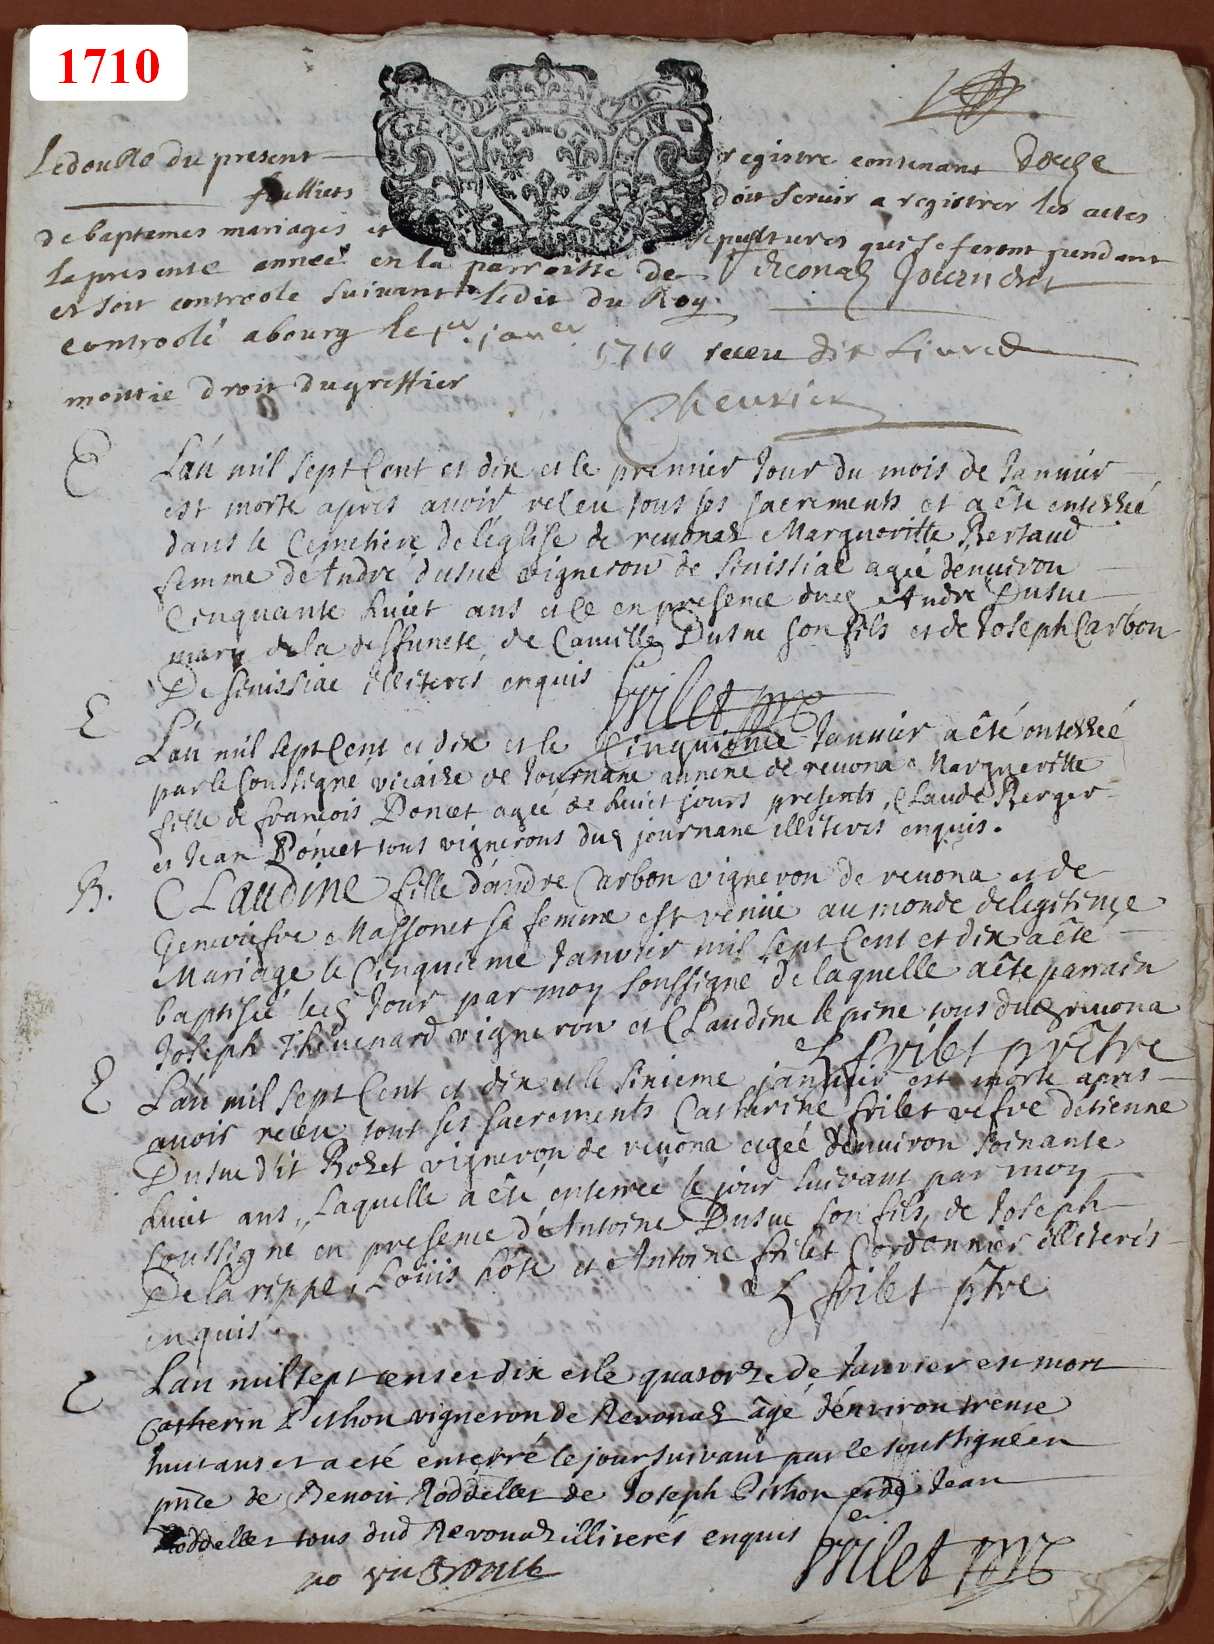 1710
GEN DE DIJON
Le double du present registre contenant douze
fulliets doit servir a registrer les actes
de baptemes mariages et sepultures qui se feront pendant
la presente année en la parroisse de Revonaz Journans
et soit controole suivant ledit du Roy
controolé a bourg le 1er janer 1710 receu dix livres
moitie droit du greffier
Cheurier
E L'an mil sept Cent et dix et le premier Jour du mois de Januier
est morte apres avoir receu tous ses sacrements et a êté enterrée
dans le Cemetiere de l'eglise de reuonaz Margueritte Bertaud
femme d'André dusuc vigneron de senissiac agée d'enuiron
Cinquante huict ans et ce en presence dud André Dusuc
mary de la deffuncte, de Camille Dusuc son fils et de Joseph Carbon
De senissiac illiterés enquis
Frilet ptre
E L'an mil sept Cent et dix et le Cinquième Januier a êté enterrée
par le soussigné vicaire de Journans annexe de reuona Margueritte
fille de françois Poncet agée de huict jours presents, Claude Berger
et Jean Poncet tous vignerons dud journans illiterés enquis.
B. CLaudine fille d'andré Carbon vigneron de reuona et de
Geneviefve Massonet sa femme est venüe au monde de legitime
Mariage le Cinquieme Januier mil sept Cent et dix a êté
baptisée led Jour par moy soussigné de laquelle a êté parrain
Joseph Thévenard vigneron et CLaudine lepine tous dud reuona
Frilet prêtre
E L'an mil sept Cent et dix et le sixieme januier est morte apres
auoir receu tout ses sacrements Catherine frilet vefve d'etienne
Dusuc dit Rozet vigneron de reuona agée d'enuiron soixante
huict ans, Laquelle a êté enterrée le jour suivant par moy
soussigné en presence d'Antoine Dusuc son fils, de Joseph
De la rippe, Loüis hôte et Antoine frilet Cordonnier illiterés
enquis.
Frilet ptre
E L'an mil sept cens et dix et le quatorze de Januier est mort
Catherin Pithon vigneron de Revonaz âgé d'environ trente
huit ans et a eté enterré le jour suivant par le soussigné en
pñce de Benoit Roddellet de Joseph Pithon et de Jean
Roddellet tous dud Revonaz illiterés enquis
Frilet ptre